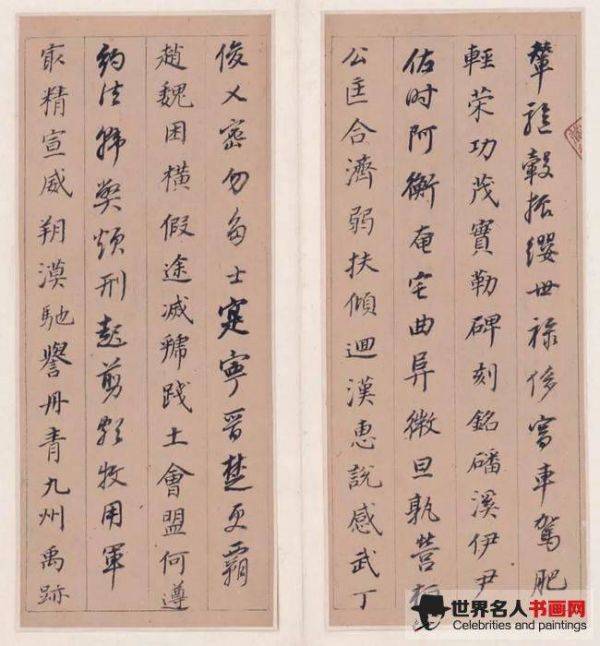 輦驅轂振纓世祿侈富車駕肥
輕策功茂實勒碑刻銘磻溪伊尹
佐时阿衡奄宅曲阜微旦孰營桓
公匡合濟弱扶傾迴漢惠說感武丁
俊乂密勿多士寔寧晉楚更霸
趙魏困橫假途滅虢踐土會盟何遵
約法韓弊煩刑起剪頗牧用軍
最精宣威朔漠馳譽丹青九州禹跡
世界名人书画网
Celebrities and paintings